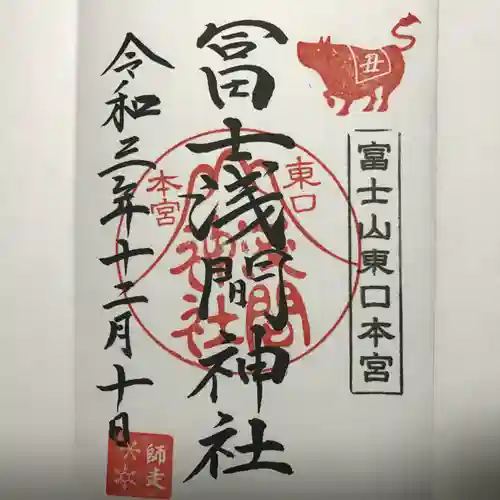 丑
富士山東口本宮
冨士浅間神社
東口
本宮
浅間
神社
令和三年十二月十日
師走